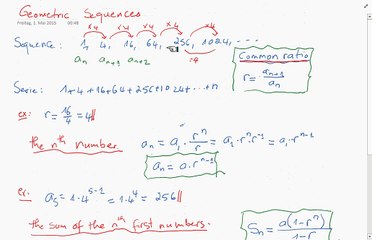 Geometric Sequences
Freitag, 1. Mai 2015 00:48
×4 ×4 ×4 ×4 ×4
Sequence: 1, 4, 16, 64, 256, 1024, ...
÷4
an an+1 an+2
Common ratio
r = an+1/an
Serie: 1+4+16+64+256+1024+...+n
ex: r = 16/4 = 4
the nth number
an = a1 · r^n/r = a1·r^n·r^-1 = a1·r^n-1
an = a·r^n-1
ex: a5 = 1·4^5-1 = 1·4^4 = 256
the sum of the nth first numbers.
Sn = a(1-r^n)/1-r